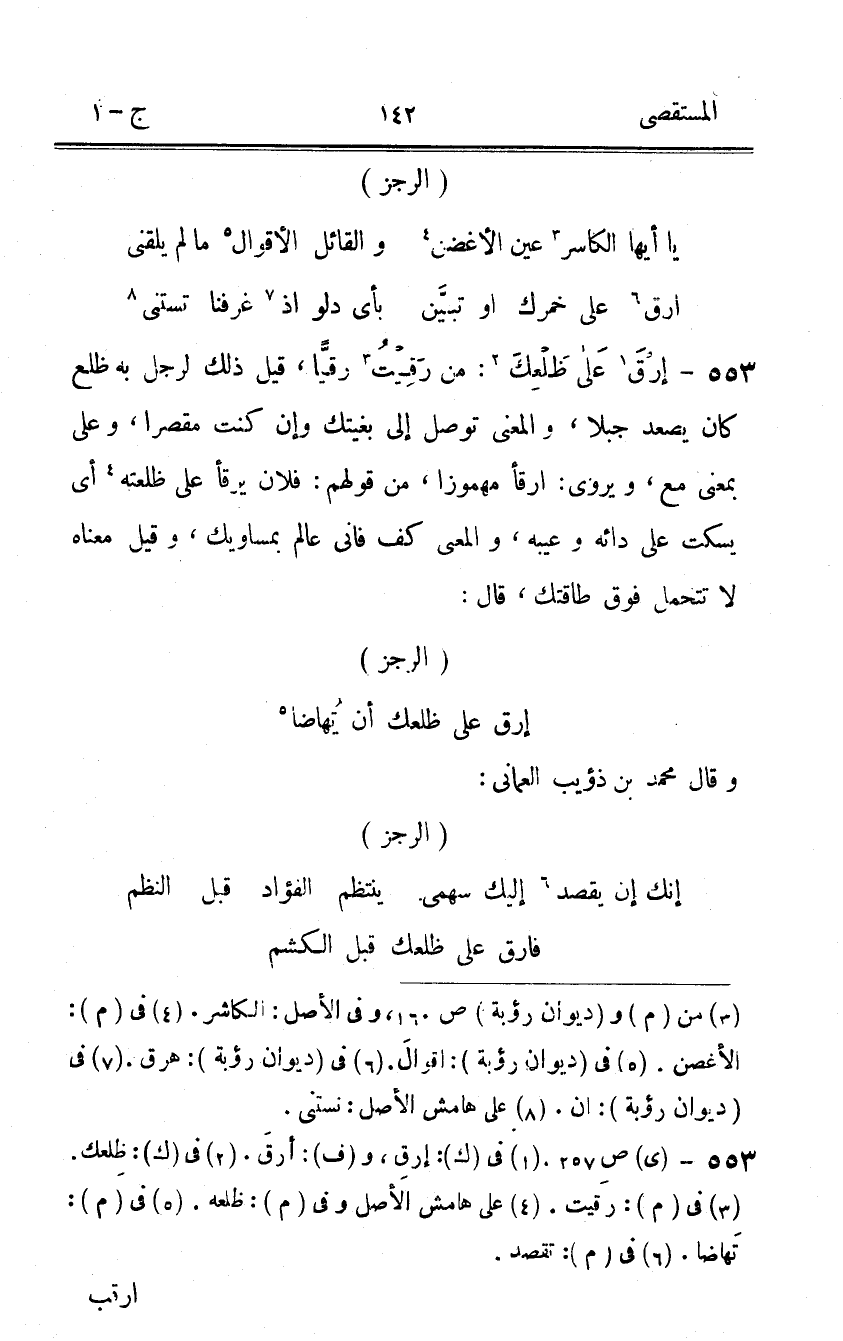 المستقصى ١٤٢ ج - ١
( الرجز )
يا أيها الكاسر٣ عين الأغضن٤ و القائل الأقوال٥ ما لم يلقنى
ارق٦ على خمرك او تبيَّن بأى دلو اذ٧ غرفنا تستنى٨
٥٥٣ - إرْقَ١ عَلٰى ظَلْعِكَ٢ : من رَقِيْتُ٣ رقيًّا، قيل ذلك لرجل به ظلع
كان يصعد جبلا، و المعنى توصل إلى بغيتك وإن كنت مقصرا، و على
بمعنى مع، و يروى: ارقأ مهموزا، من قولهم: فلان يرقأ على ظلعته٤ أى
يسكت على دائه و عيبه، و المعى كف فانى عالم بمساويك، و قيل معناه
لا تتحمل فوق طاقتك، قال:
( الرجز )
إرق على ظلعك أن تُهاضا٥
و قال محمد بن ذؤيب العمانى:
( الرجز )
إنك إن يقصد٦ إليك سهمى ينتظم الفؤاد قبل النظم
فارق على ظلعك قبل الكشم
(٣) من ( م ) و ( ديوان رؤبة ) ص ١٦٠، و فى الأصل: الكاشر. (٤) فى ( م ):
الأغصن. (٥) فى ( ديوان رؤبة ): اقوالَ. (٦) فى ( ديوان رؤبة ): هرق. (٧) فى
( ديوان رؤبة ): ان. (٨) على هامش الأصل: نستنى.
٥٥٣ - (ى) ص ٢٥٧. (١) فى (ك): إرقِ، و (ف): أرقَ. (٢) فى (ك): ظِلعك.
(٣) فى ( م ): رقَيت. (٤) على هامش الأصل و فى ( م ): ظلعه. (٥) فى ( م ):
تَهاضا. (٦) فى ( م ): تقصد.
ارتب